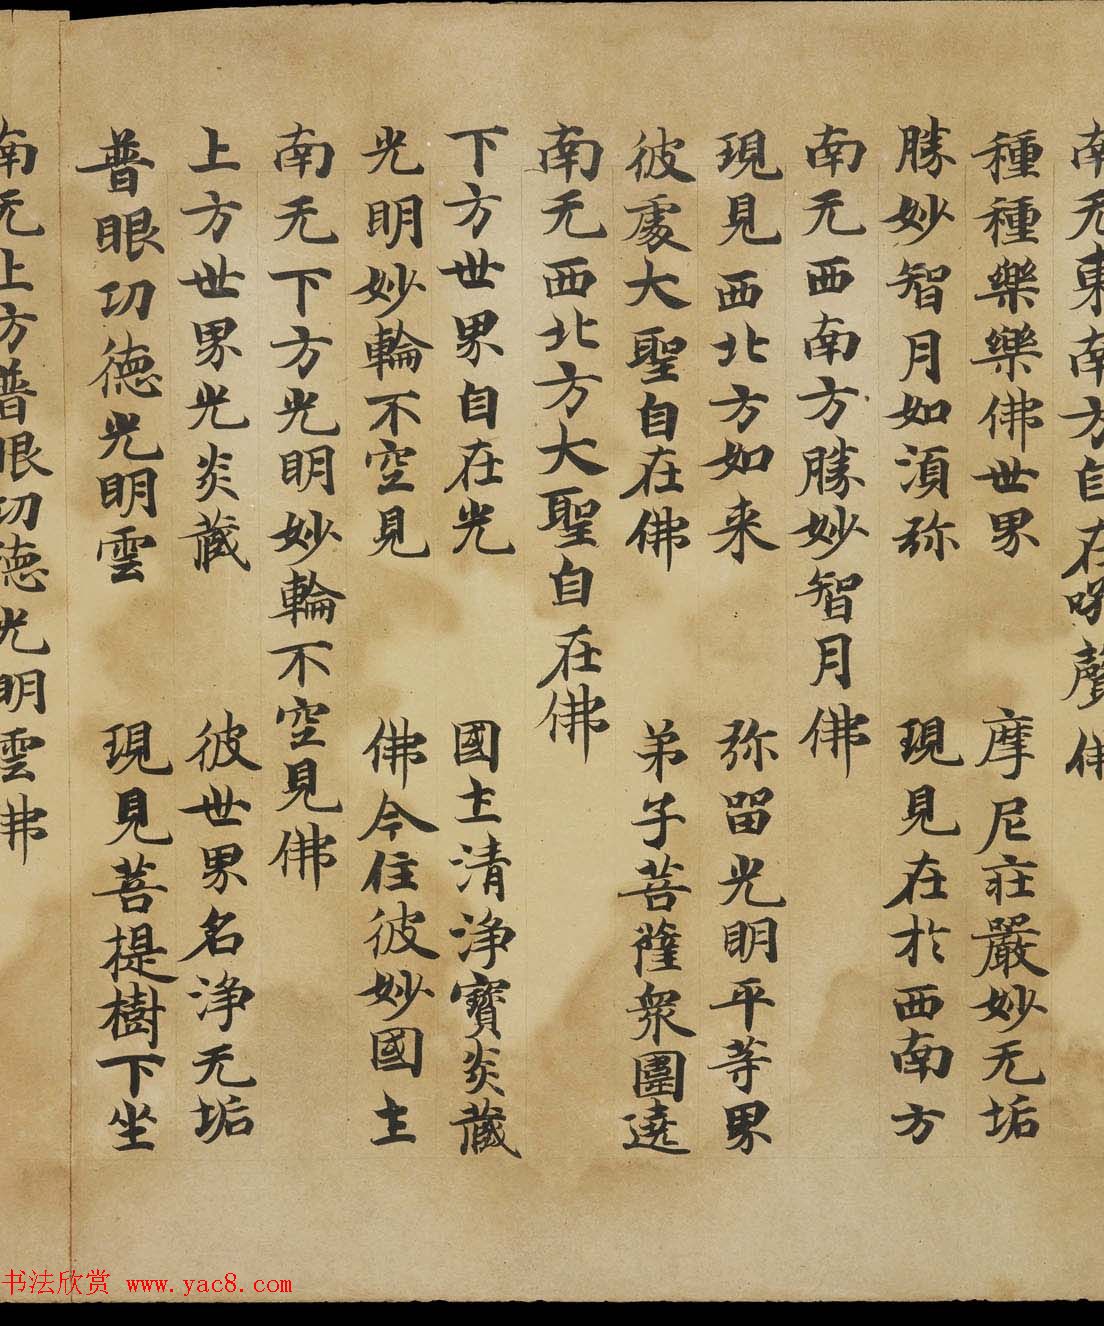 南无東南方自在吼聲佛
種種樂樂佛世界 摩尼莊嚴妙无垢
勝妙智月如須弥 現見在於西南方
南无西南方勝妙智月佛
現見西北方如来 弥留光明平等界
彼處大聖自在佛 弟子菩薩衆圍遶
南无西北方大聖自在佛
下方世界自在光 國土清淨寶炎藏
光明妙輪不空見 佛今住彼妙國土
南无下方光明妙輪不空見佛
上方世界光炎藏 彼世界名淨无垢
普眼功德光明雲 現見菩提樹下坐
南无上方普眼功德光明雲佛
书法欣赏 www.yac8.com